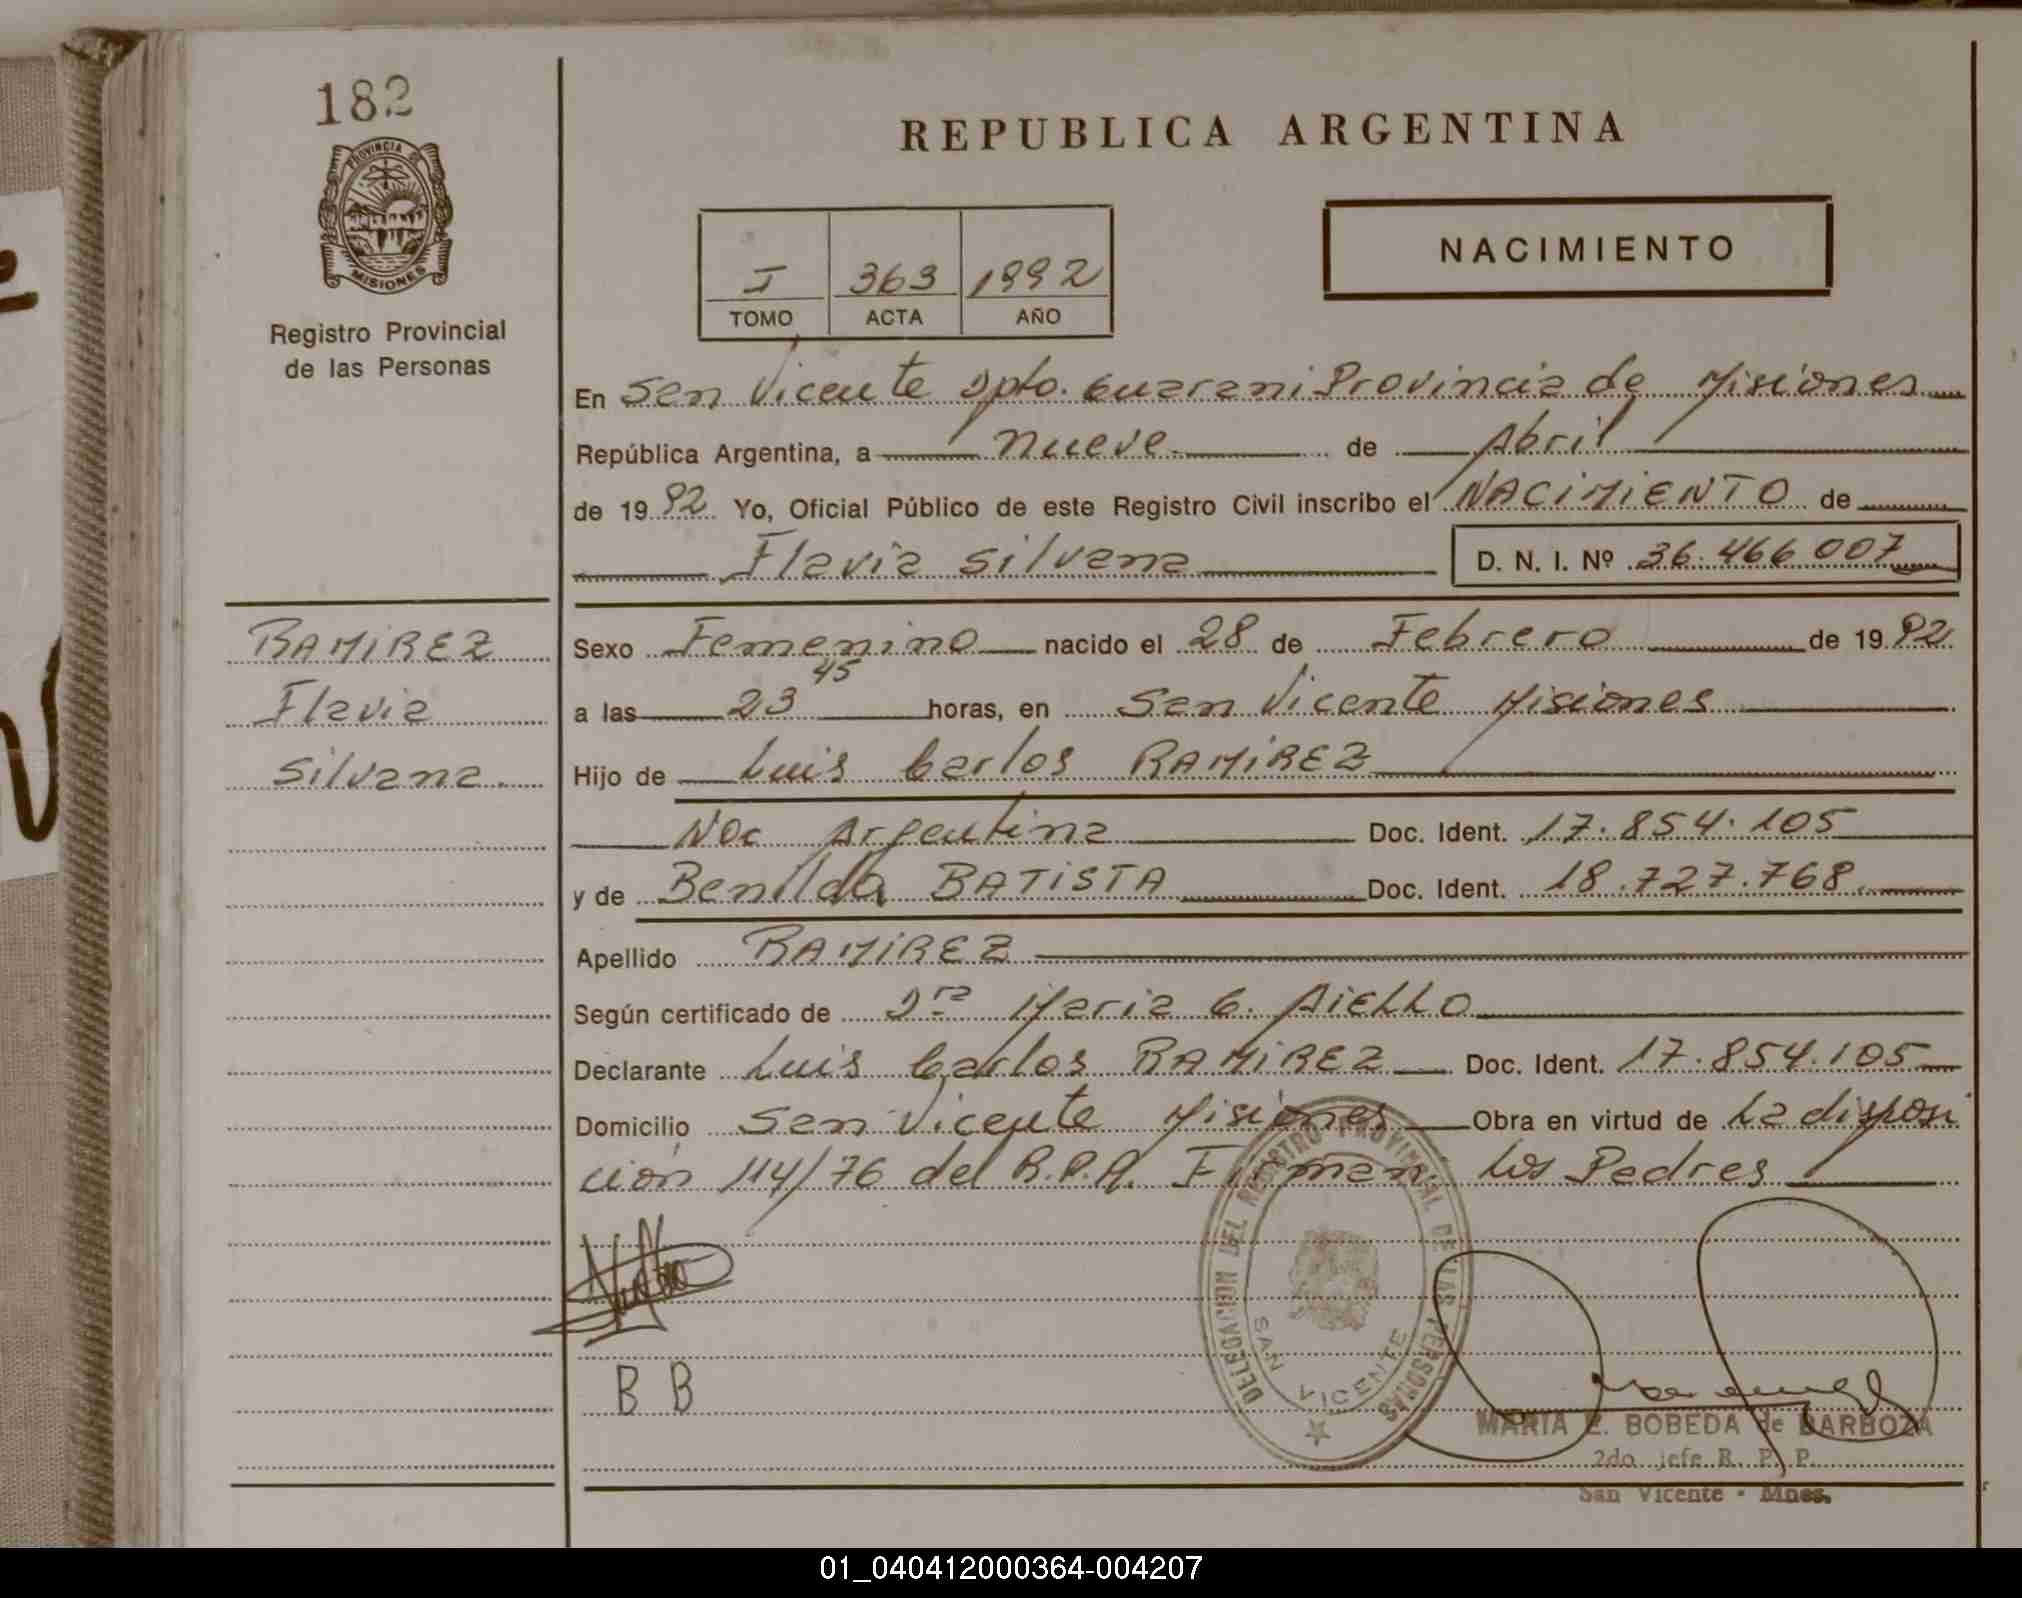 182
PROVINCIA DE
MISIONES
Registro Provincial
de las Personas
REPUBLICA ARGENTINA
NACIMIENTO
I 363 1992
TOMO ACTA AÑO
En San Vicente Dpto. Guarani Provincia de Misiones
República Argentina, a nueve de Abril
de 19 92 Yo, Oficial Público de este Registro Civil inscribo el NACIMIENTO de
Flavia Silvana D. N. I. Nº 36.466 007
RAMIREZ
Flavia
Silvana.
Sexo Femenino nacido el 28 de Febrero de 19 92
a las 23 45 horas, en San Vicente Misiones
Hijo de Luis Carlos RAMIREZ
Nac Argentina Doc. Ident. 17.854.105
y de Benilda BATISTA Doc. Ident. 18.727.768.
Apellido RAMIREZ
Según certificado de Dra Maria G. AiELLO
Declarante Luis Carlos RAMIREZ Doc. Ident. 17.854.105
Domicilio San Vicente Misiones Obra en virtud de La disposi
ción 114/76 del R.P.P. Firman Los Padres
DELEGACION DEL REGISTRO PROVINCIAL DE LAS PERSONAS
SAN VICENTE
B B
MARIA E. BOBEDA de BARBOZA
2do. Jefe R. P. P.
San Vicente - Mnes.
01_040412000364-004207